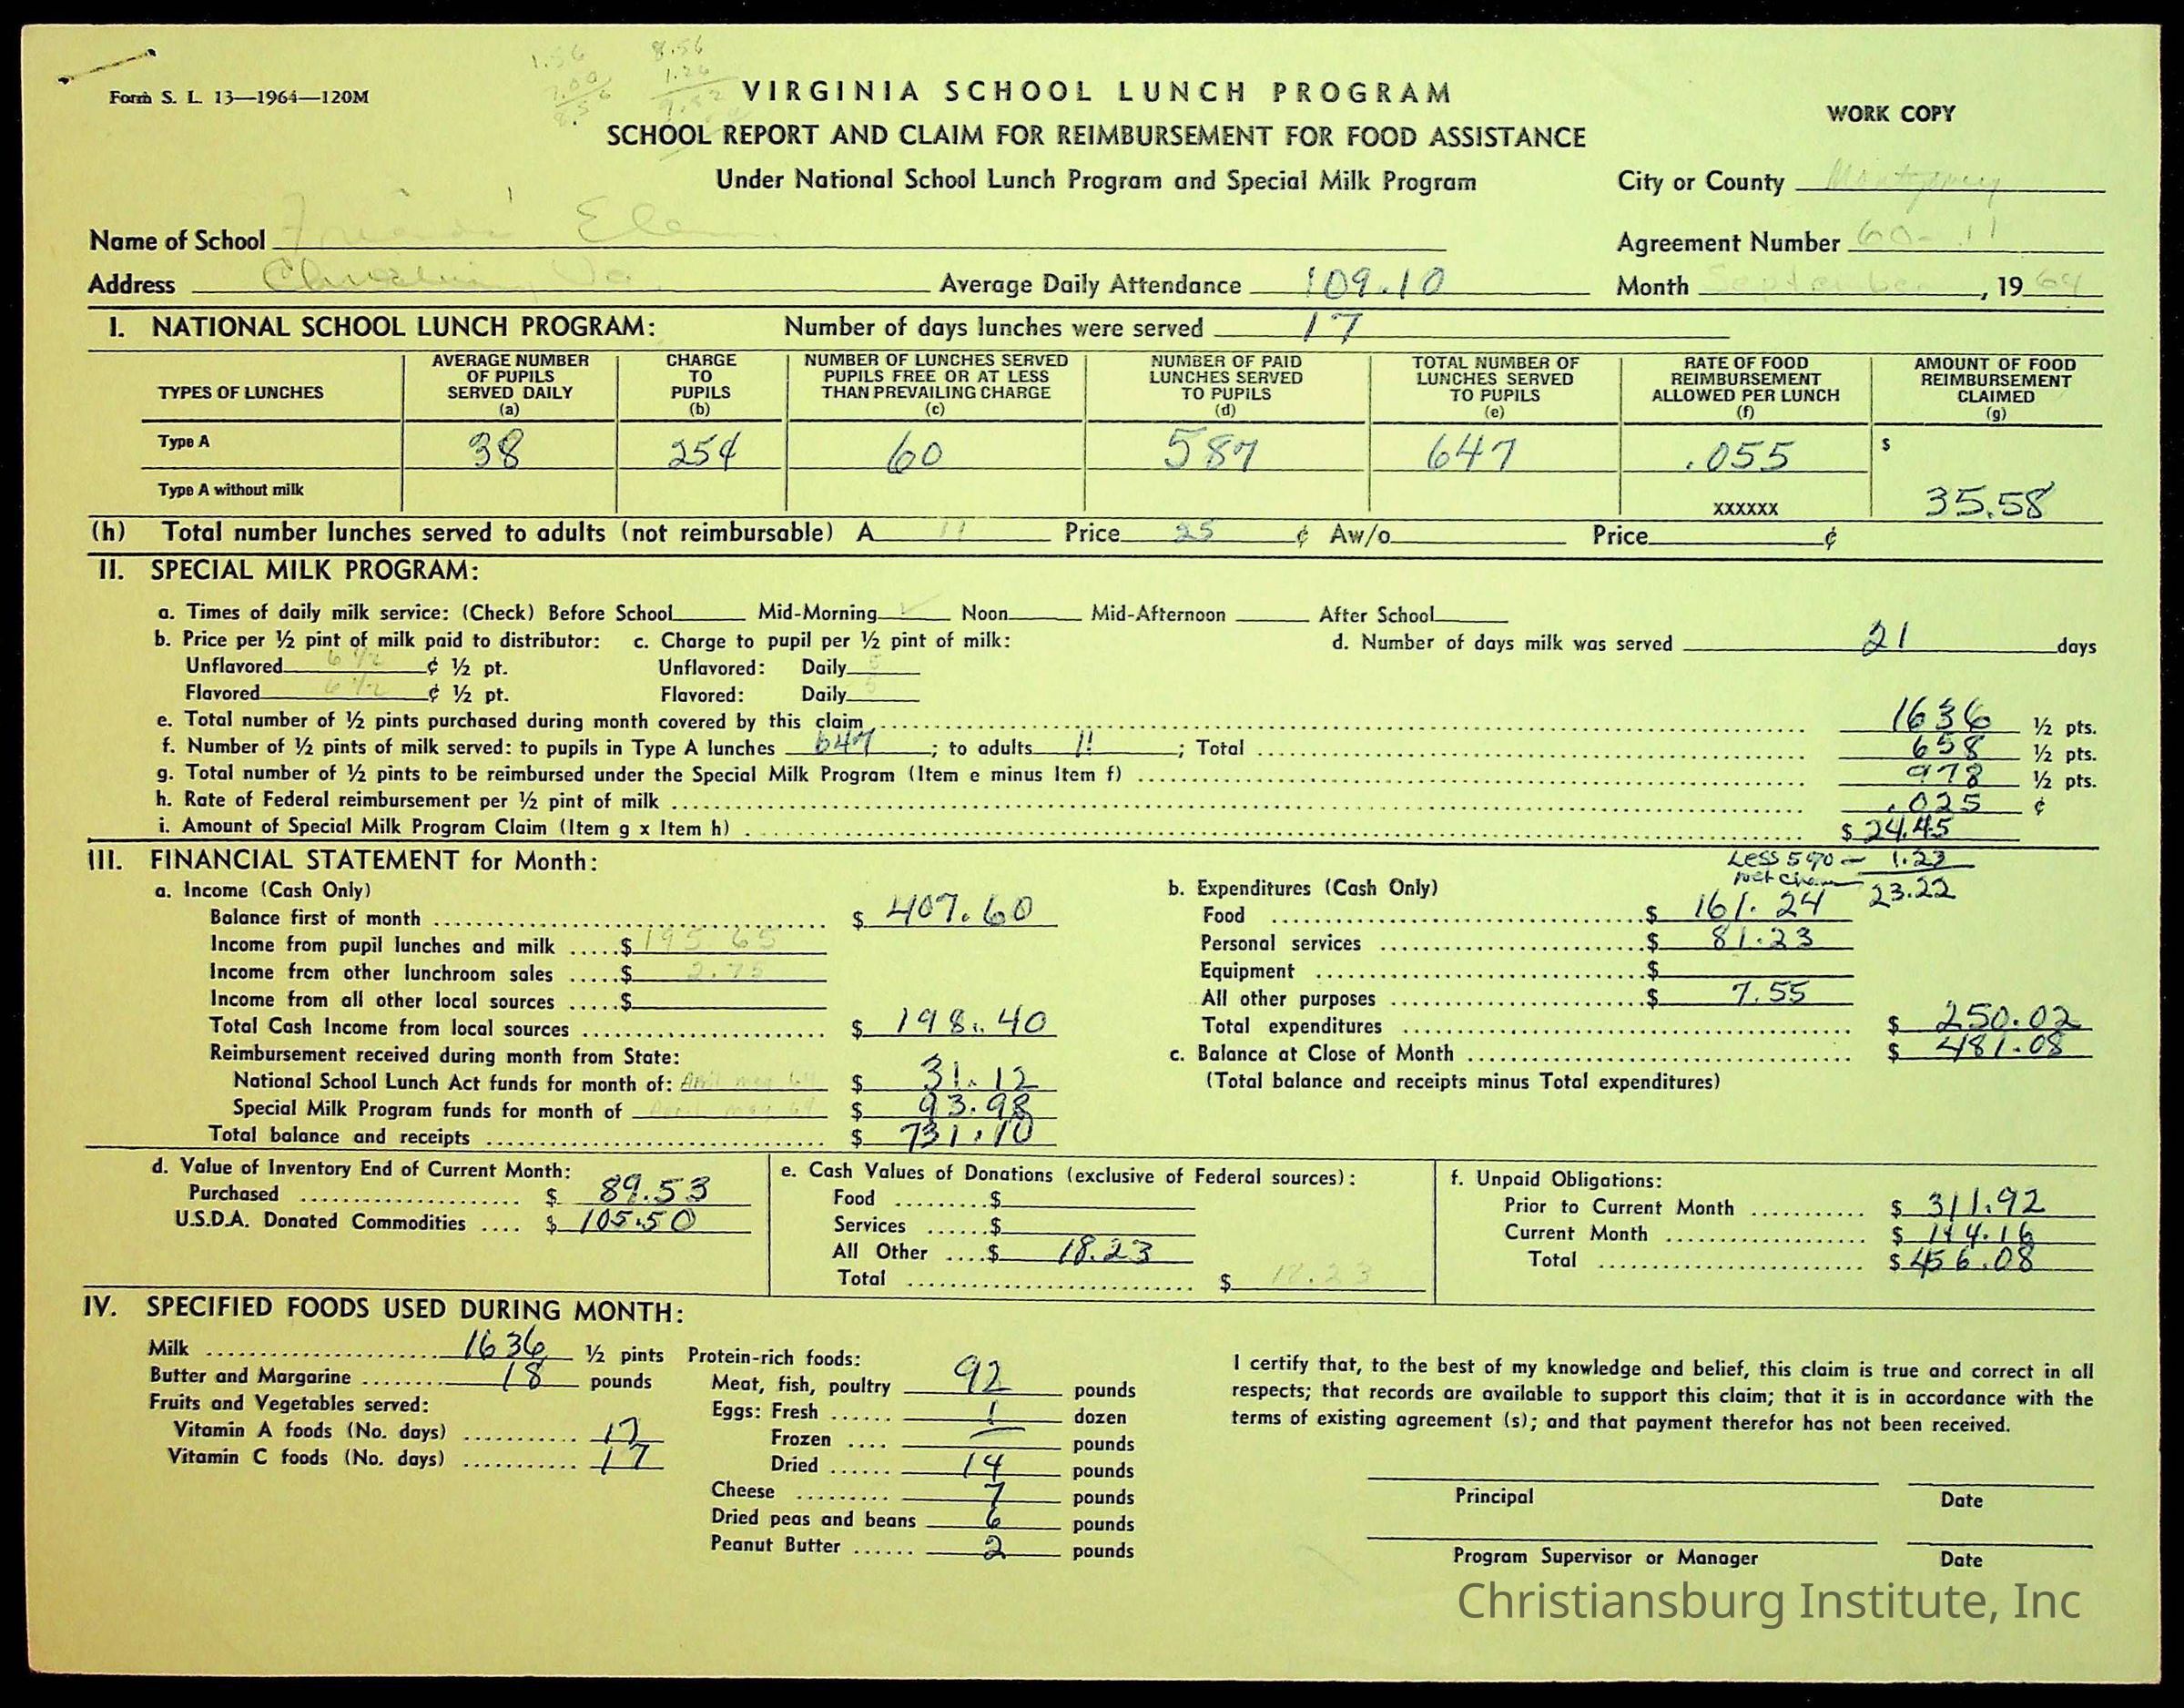 1.56
7.00
8.56
8.56
1.26
9.82
Form S. L. 13—1964—120M
VIRGINIA SCHOOL LUNCH PROGRAM
WORK COPY
SCHOOL REPORT AND CLAIM FOR REIMBURSEMENT FOR FOOD ASSISTANCE
Under National School Lunch Program and Special Milk Program
City or County Montgomery
Name of School Friends Elem.
Agreement Number 60-11
Address Va. Average Daily Attendance 109.10 Month September, 1964
I. NATIONAL SCHOOL LUNCH PROGRAM: Number of days lunches were served 17
TYPES OF LUNCHES AVERAGE NUMBER OF PUPILS SERVED DAILY (a) CHARGE TO PUPILS (b) NUMBER OF LUNCHES SERVED PUPILS FREE OR AT LESS THAN PREVAILING CHARGE (c) NUMBER OF PAID LUNCHES SERVED TO PUPILS (d) TOTAL NUMBER OF LUNCHES SERVED TO PUPILS (e) RATE OF FOOD REIMBURSEMENT ALLOWED PER LUNCH (f) AMOUNT OF FOOD REIMBURSEMENT CLAIMED (g)
Type A 38 25¢ 60 587 647 .055 $
Type A without milk XXXXXX 35.58
(h) Total number lunches served to adults (not reimbursable) A 11 Price 25 ¢ Aw/o Price ¢
II. SPECIAL MILK PROGRAM:
a. Times of daily milk service: (Check) Before School Mid-Morning ✓ Noon Mid-Afternoon After School
b. Price per ½ pint of milk paid to distributor: c. Charge to pupil per ½ pint of milk: d. Number of days milk was served 21 days
Unflavored 6 1/2 ¢ ½ pt. Unflavored: Daily 5
Flavored 6 1/2 ¢ ½ pt. Flavored: Daily 5
e. Total number of ½ pints purchased during month covered by this claim 1636 ½ pts.
f. Number of ½ pints of milk served: to pupils in Type A lunches 647; to adults 11; Total 658 ½ pts.
g. Total number of ½ pints to be reimbursed under the Special Milk Program (Item e minus Item f) 978 ½ pts.
h. Rate of Federal reimbursement per ½ pint of milk .025 ¢
i. Amount of Special Milk Program Claim (Item g x Item h) $ 24.45
Less 5% — 1.23
net claim 23.22
III. FINANCIAL STATEMENT for Month:
a. Income (Cash Only)
Balance first of month $ 407.60
Income from pupil lunches and milk $ 195.65
Income from other lunchroom sales $ 2.75
Income from all other local sources $
Total Cash Income from local sources $ 198.40
Reimbursement received during month from State:
National School Lunch Act funds for month of: April may 64 $ 31.12
Special Milk Program funds for month of April may 64 $ 93.98
Total balance and receipts $ 731.10
b. Expenditures (Cash Only)
Food $ 161.24
Personal services $ 81.23
Equipment $
All other purposes $ 7.55
Total expenditures $ 250.02
c. Balance at Close of Month $ 481.08
(Total balance and receipts minus Total expenditures)
d. Value of Inventory End of Current Month:
Purchased $ 89.53
U.S.D.A. Donated Commodities $ 105.50
e. Cash Values of Donations (exclusive of Federal sources):
Food $
Services $
All Other $ 18.23
Total $ 18.23
f. Unpaid Obligations:
Prior to Current Month $ 311.92
Current Month $ 144.16
Total $ 456.08
IV. SPECIFIED FOODS USED DURING MONTH:
Milk 1636 ½ pints
Butter and Margarine 18 pounds
Fruits and Vegetables served:
Vitamin A foods (No. days) 17
Vitamin C foods (No. days) 17
Protein-rich foods:
Meat, fish, poultry 92 pounds
Eggs: Fresh 1 dozen
Frozen — pounds
Dried 14 pounds
Cheese 7 pounds
Dried peas and beans 6 pounds
Peanut Butter 2 pounds
I certify that, to the best of my knowledge and belief, this claim is true and correct in all
respects; that records are available to support this claim; that it is in accordance with the
terms of existing agreement (s); and that payment therefor has not been received.
Principal Date
Program Supervisor or Manager Date
Christiansburg Institute, Inc